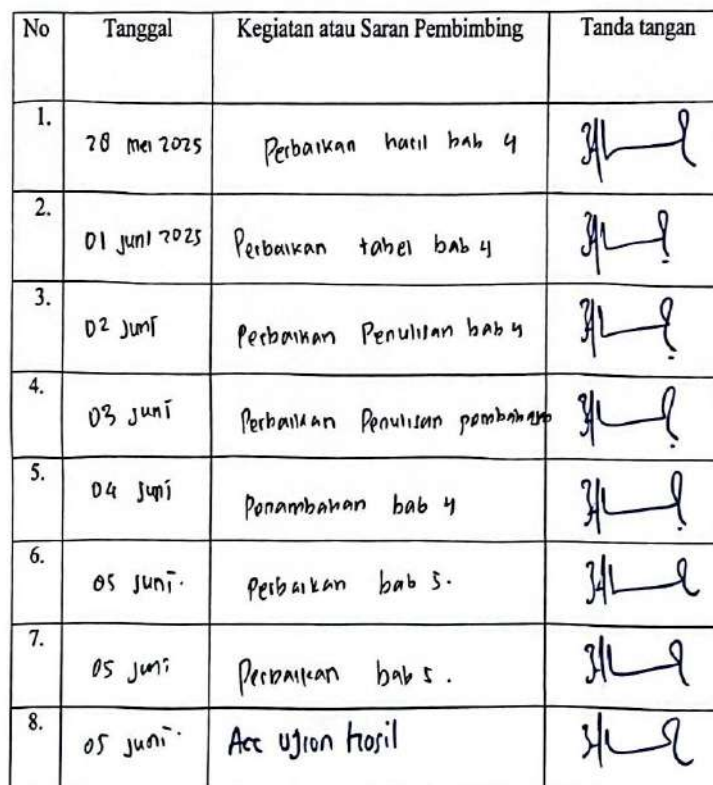 No Tanggal Kegiatan atau Saran Pembimbing Tanda tangan
1. 28 mei 2025 Perbaikan hasil bab 4
2. 01 juni 2025 Perbaikan tabel bab 4
3. 02 Juni Perbaikan Penulisan bab 4
4. 03 juni Perbaikan Penulisan pembahasan
5. 04 Juni Penambahan bab 4
6. 05 Juni. Perbaikan bab 5.
7. 05 Juni Perbaikan bab 5.
8. 05 juni. Acc Ujian Hasil